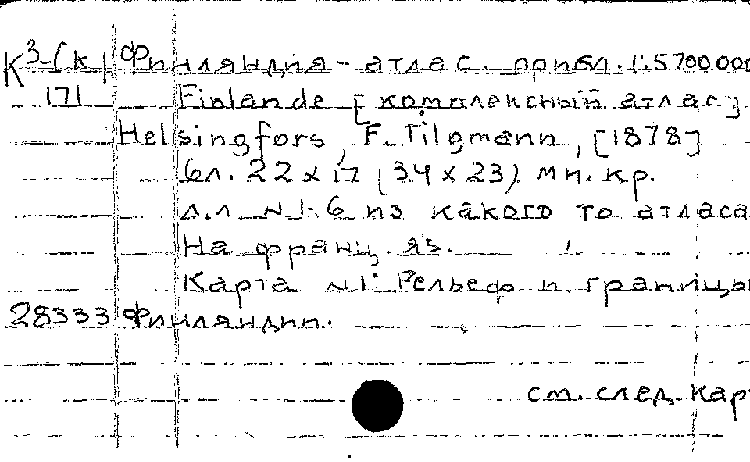 К 3-(к) Финляндия - атлас. прибл. 1:5700000
171 Finlande [комплексный атлас]
Helsingfors, F. Tilgmann, [1878]
6л. 22 x 17 (34 x 23) мн. кр.
л.л №1-6 из какого то атласа
На франц. яз.
Карта №1: Рельеф и границы
28333 Финляндии.
см. след. кар